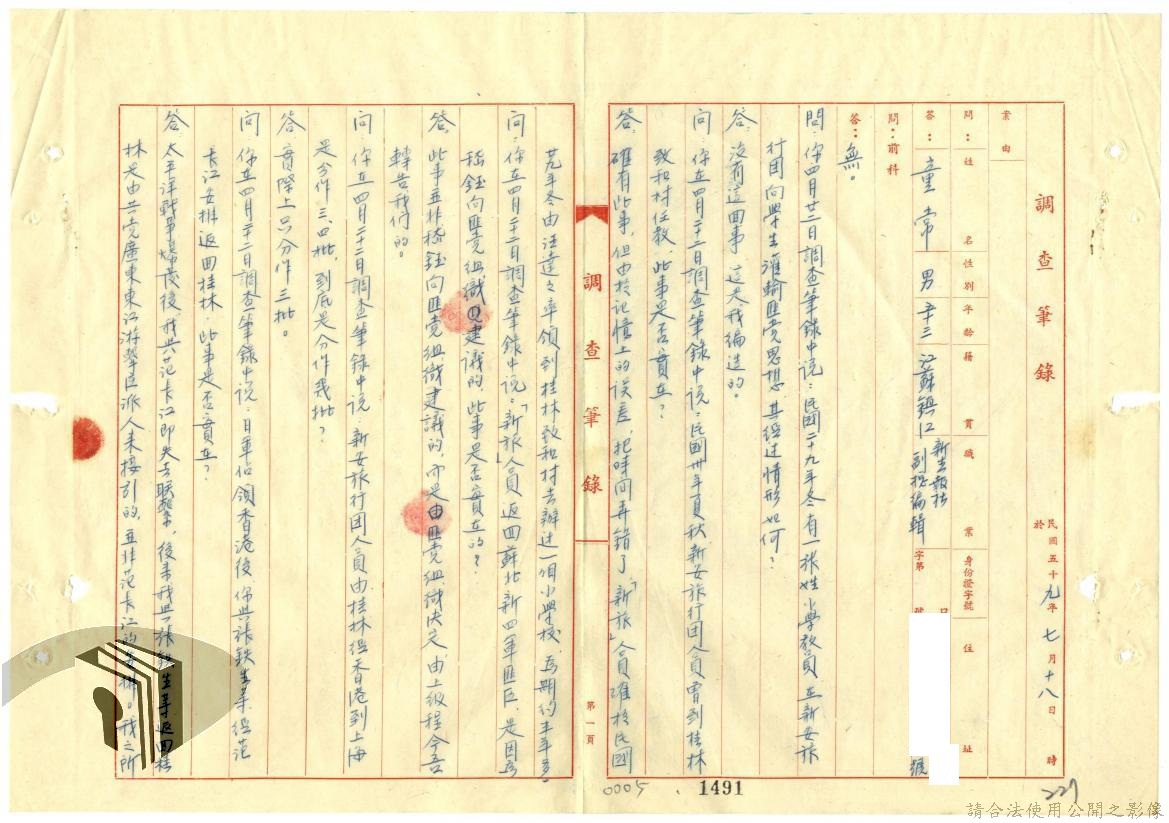 調查筆錄
民國五十九年七月十八日 時
於
案由
問：姓名 性別 年齡 籍貫 職業 身份證字號 住址
答：童常 男 五十三 江蘇鎮江 新生報社副總編輯 字第 號
問：前科
答：無。
問：你四月廿二日調查筆錄中說：民國二十九年冬有一張姓小學教員在新安旅
行團向學生灌輸匪党思想，其經过情形如何？
答：沒有這回事，這是我编造的。
問：你在四月二十二日調查筆錄中說：民國卅年夏秋，新安旅行团人員曾到桂林
致和村任教，此事是否實在？
答：確有此事，但由於记憶上的误差，把時间弄錯了，「新旅」人員確於民國
第一頁
調查筆錄
廿九年冬由汪達之率領到桂林致和村去辦过一個小學校，為期約半年多。
问：你在四月二十二日調查筆錄中說：「新旅」人員返回蘇北新四軍匪區，是因為
嵇鈺向匪党組織建議的，此事是否實在的？
答：此事並非嵇鈺向匪党組織建議的，而是由匪党組織決定，由上級程今吾
轉告我们的。
问：你在四月二十二日調查筆錄中說，新安旅行团人員由桂林經香港到上海
是分作三、四批，到底是分作幾批？
答：實際上只分作三批。
问：你在四月二十二日調查筆錄中說：日軍佔領香港後，你與張鉄生等經范
长江安排返回桂林，此事是否實在？
答：太平洋戰爭爆發後，我與范长江即失去联繫，後来我與張鉄生等返回桂
林是由共党廣東東江游擊區派人来接引的，並非范长江的安排。我之所
0005
1491
227
請合法使用公開之影像